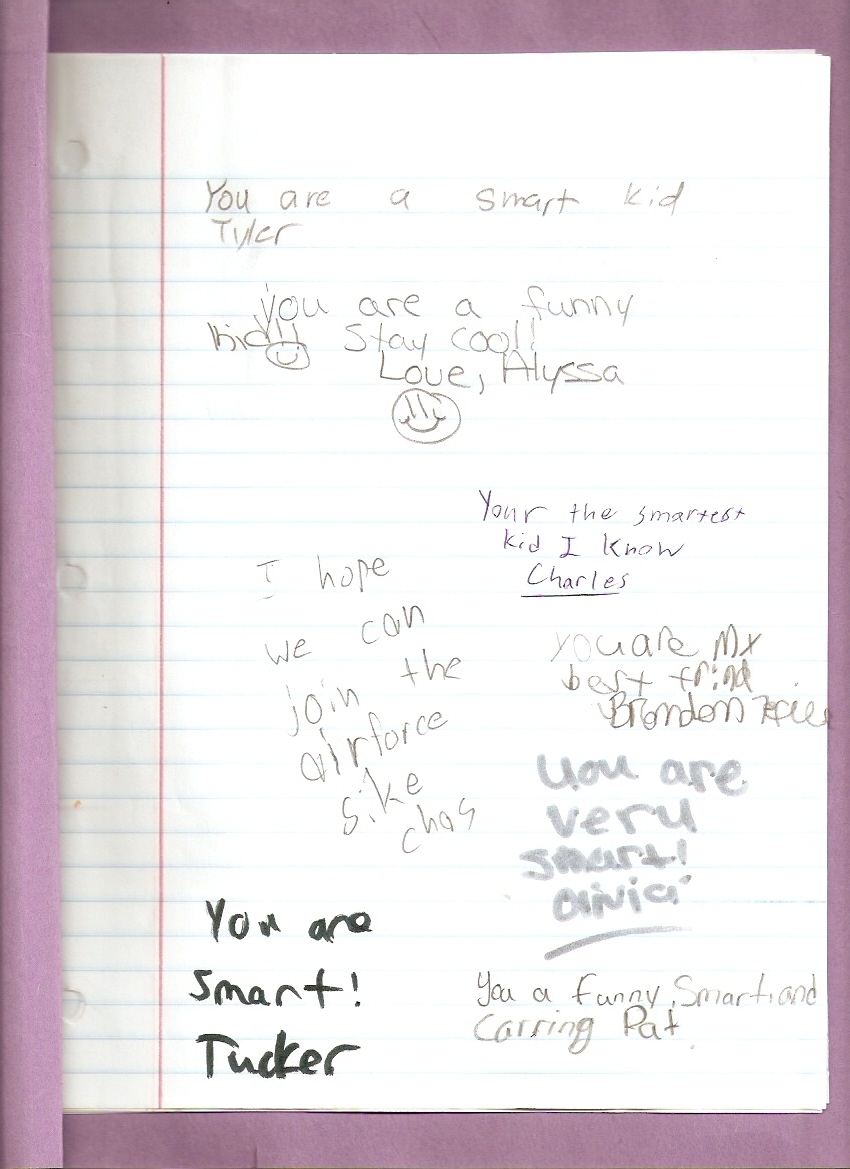 You are a smart kid
Tyler
you are a funny
kid!! Stay cool!
Love, Alyssa
Your the smartest
kid I know
Charles
I hope
we can
join the
airforce
sike
chas
you are My
best frind
Brandon
you are
very
smart!
Olivia
You are
Smart!
Tucker
You a funny, Smart, and
Carring Pat